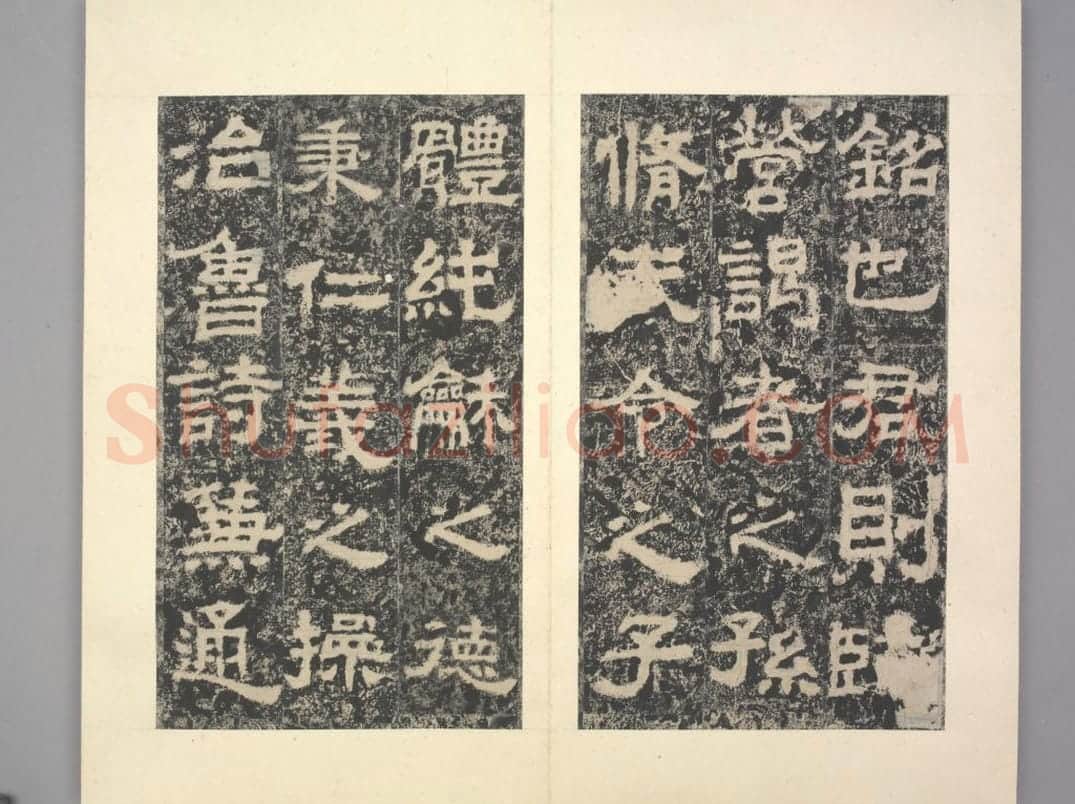 銘也君則
營謁者之孫
脩武令之子
體純龢之德
秉仁義之操
治魯詩兼通
Shufaziliao.COM